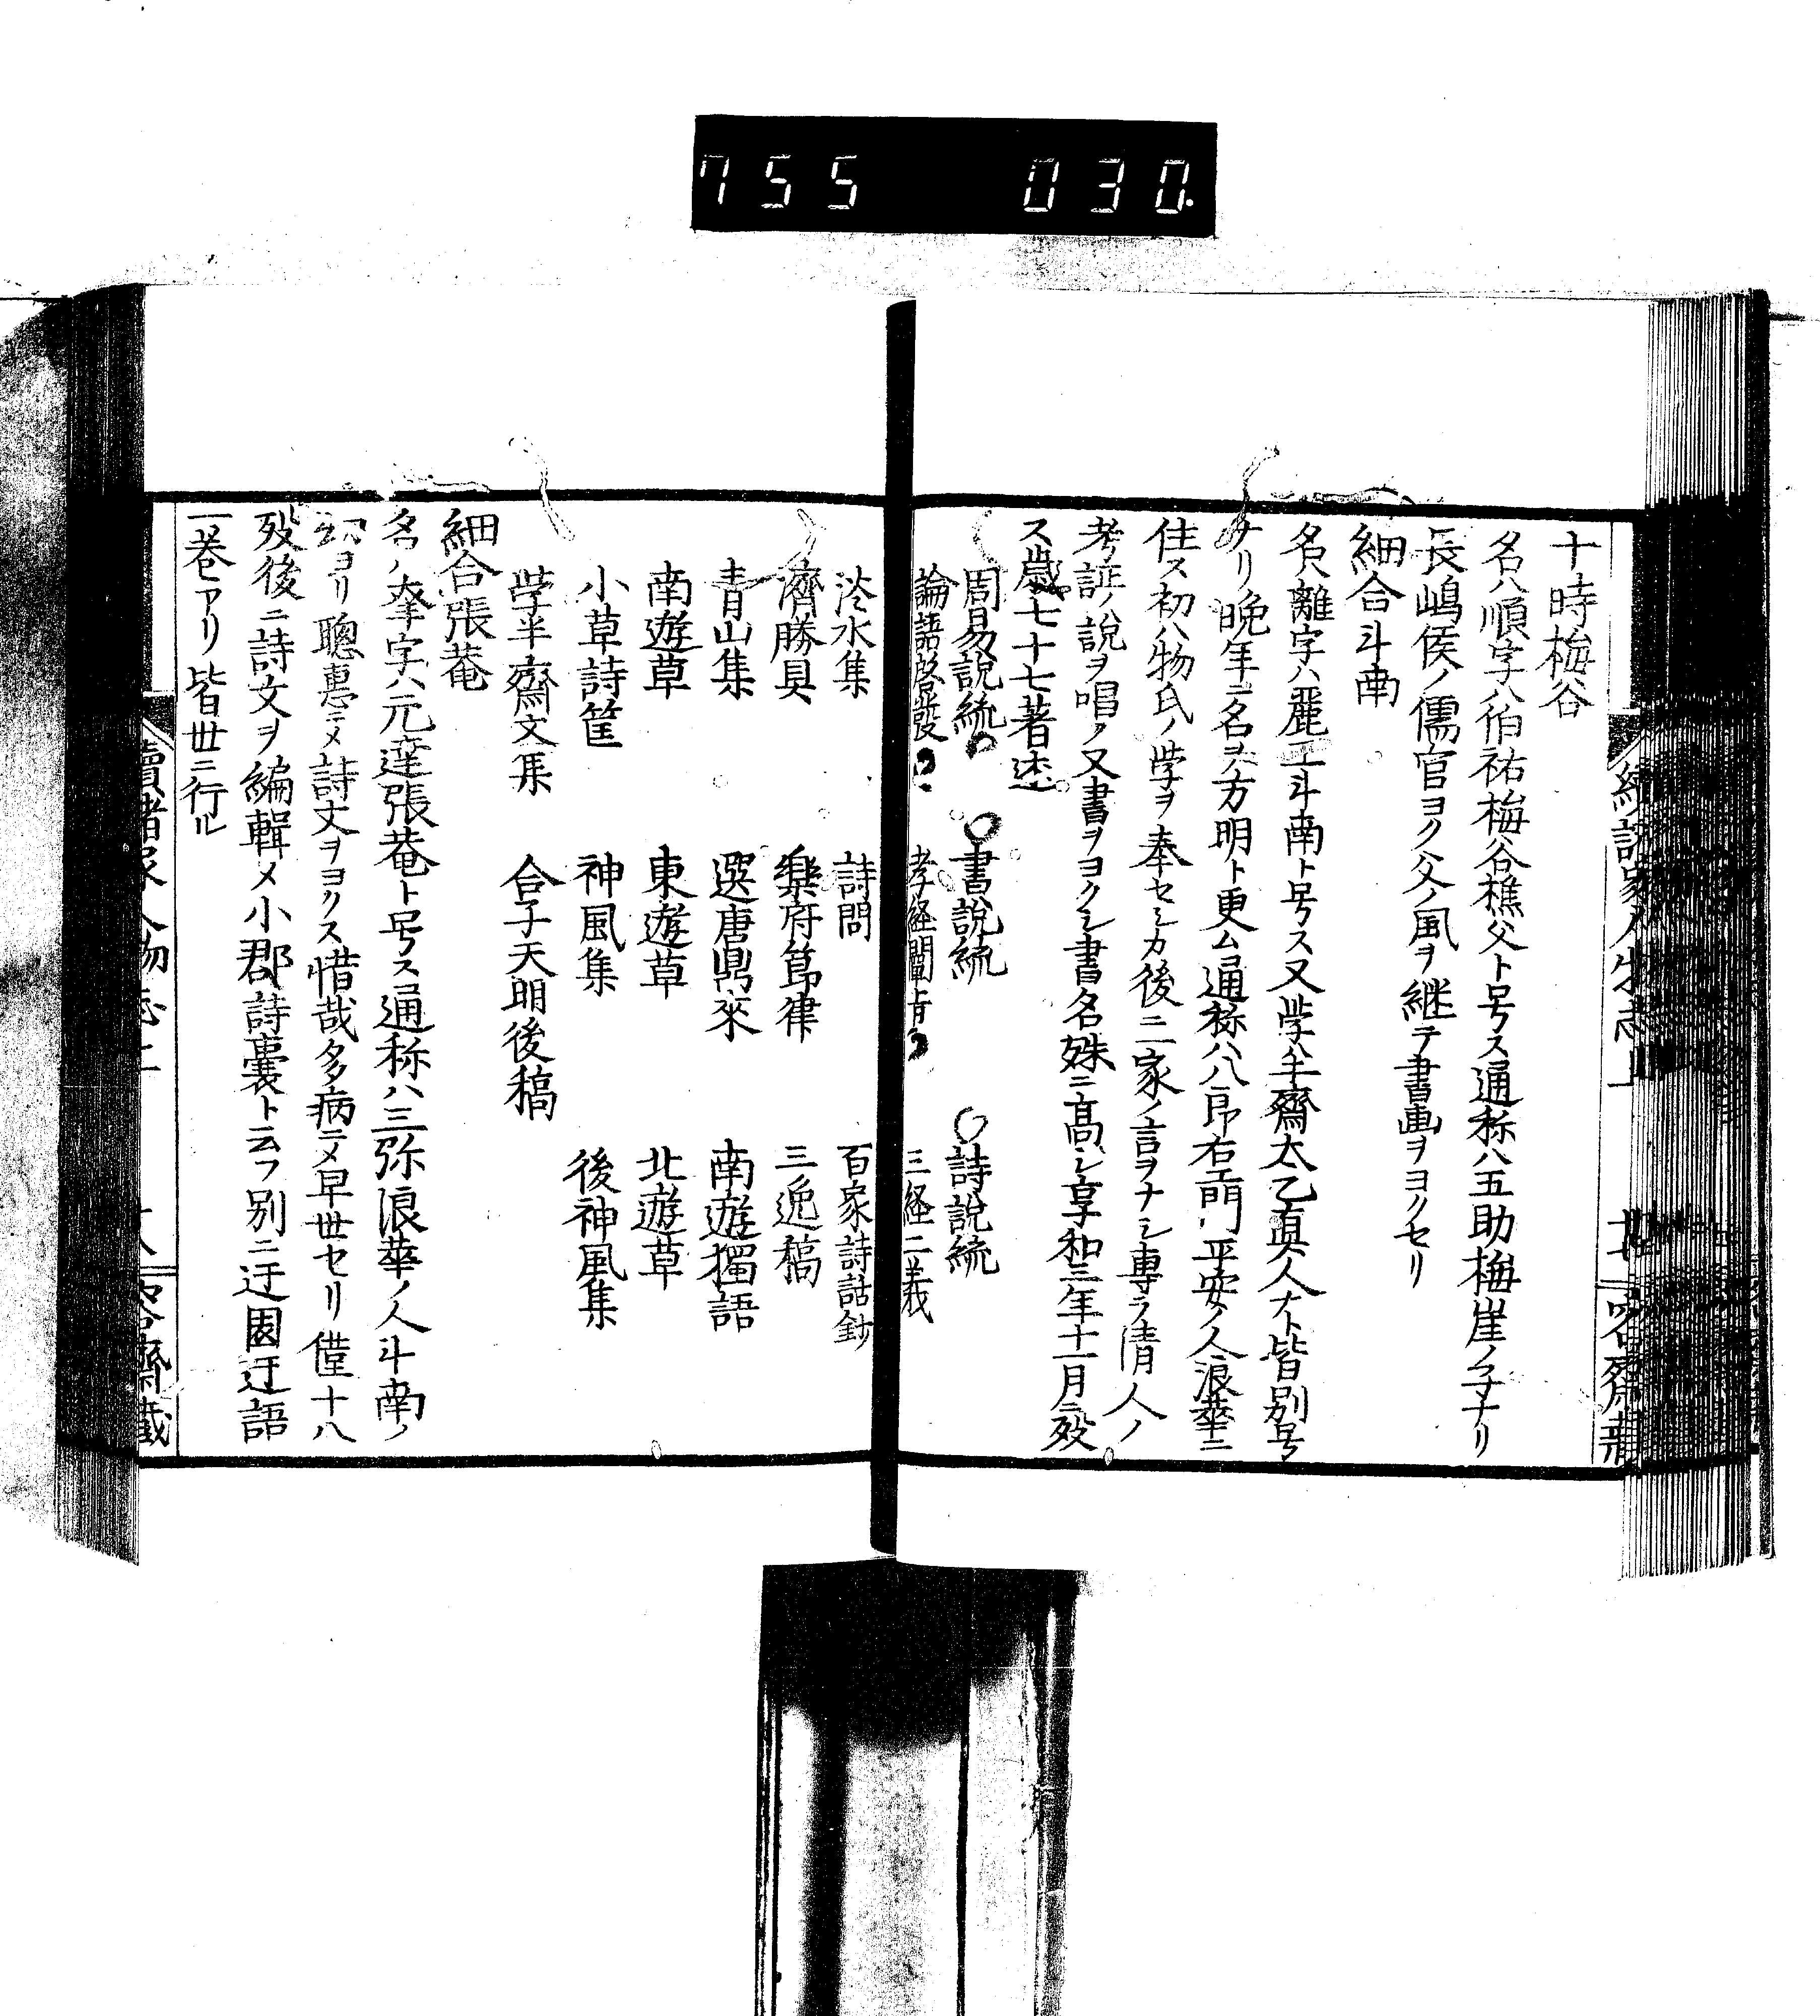 755 030.
十時梅谷
名ハ順字ハ伯祐梅谷樵父ト号ス通称ハ五助梅崖ノ子ナリ
長嶋侯ノ儒官ヨク父ノ風ヲ継テ書画ヲヨクセリ
細合斗南
名ハ離字ハ麗王斗南ト号ス又学半齋太乙真人ナト皆別号
ナリ晩年ニ名ヲ方明ト更ム通称ハ八郎右エ門平安ノ人浪華ニ
住ス初ハ物氏ノ学ヲ奉セシカ後ニ一家ノ言ヲナシ専ラ清人ノ
考証ノ説ヲ唱ク又書ヲヨクシ書名殊ニ高シ享和三年十一月ニ殁
ス歳七十七著述
周易説統 書説統 詩説統
論語啓發 孝経闡旨 三経二義
詩問 百家詩話鈔
濟勝具 樂府節律 三逸稿
青山集 選唐鼎來 南遊獨語
南遊草 東遊草 北遊草
小草詩筐 神風集 後神風集
学半齋文集 合子天明後稿
細合張菴
名ハ 字ハ元達張菴ト号ス通称ハ三弥浪華ノ人斗南ノ
ヨリ聰惠ニメ詩文ヲヨクス惜哉多病ニメ早世セリ僅十八
殁後ニ詩文ヲ編輯メ小郡詩囊ト云フ別ニ迂園迂語
一巻アリ皆世ニ行ル